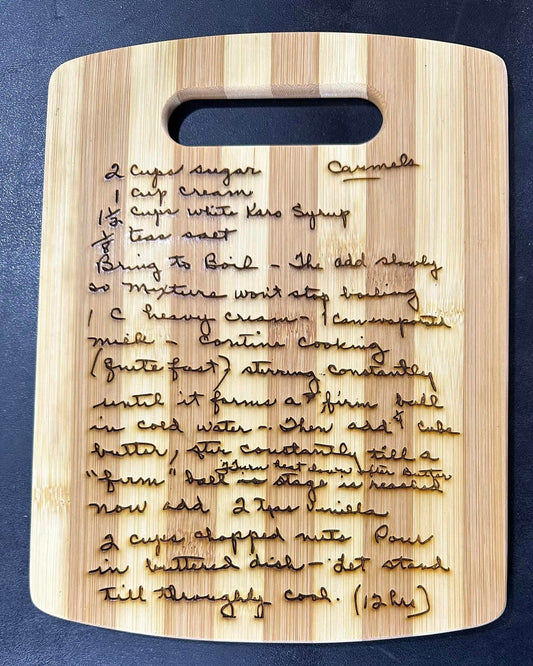 Carmels
2 cups sugar
1 cup cream
1 1/2 cups white Karo Syrup
1/2 teas salt
Bring to Boil - The add slowly
so mixture won't stop boiling
1 C heavy cream - 1 can evaporated
milk - Contine cooking
(quite fast) stirring constantly
until it forms a firm ball
in cold water - Then add 1/4 cube
butter, stir constantly till a
"Turn heat down after butter
"firm" ball stage is reached
now add 2 Tsps Vanilla
2 cups chopped nuts Pour
in buttered dish - let stand
till throughly cool. (12 hrs)